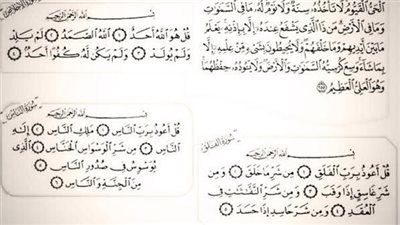 بسم الله الرحمن الرحيم
قُلْ هُوَ ٱللَّهُ أَحَدٌ ١ ٱللَّهُ ٱلصَّمَدُ ٢ لَمْ يَلِدْ
وَلَمْ يُولَدْ ٣ وَلَمْ يَكُن لَّهُۥ كُفُوًا أَحَدٌۢ ٤
ٱلْحَىُّ ٱلْقَيُّومُ لَا تَأْخُذُهُۥ سِنَةٌ وَلَا نَوْمٌ لَّهُۥ مَا فِى ٱلسَّمَٰوَٰتِ
وَمَا فِى ٱلْأَرْضِ مَن ذَا ٱلَّذِى يَشْفَعُ عِندَهُۥٓ إِلَّا بِإِذْنِهِۦ يَعْلَمُ
مَا بَيْنَ أَيْدِيهِمْ وَمَا خَلْفَهُمْ وَلَا يُحِيطُونَ بِشَىْءٍ مِّنْ عِلْمِهِۦٓ إِلَّا
بِمَا شَآءَ وَسِعَ كُرْسِيُّهُ ٱلسَّمَٰوَٰتِ وَٱلْأَرْضَ وَلَا يَـُٔودُهُۥ حِفْظُهُمَا
وَهُوَ ٱلْعَلِىُّ ٱلْعَظِيمُ ٢٥٥
سورة الناس
بسم الله الرحمن الرحيم
قُلْ أَعُوذُ بِرَبِّ ٱلنَّاسِ ١ مَلِكِ ٱلنَّاسِ ٢ إِلَٰهِ
ٱلنَّاسِ ٣ مِن شَرِّ ٱلْوَسْوَاسِ ٱلْخَنَّاسِ ٤ ٱلَّذِى
يُوَسْوِسُ فِى صُدُورِ ٱلنَّاسِ ٥
مِنَ ٱلْجِنَّةِ وَٱلنَّاسِ ٦
سورة الفلق
بسم الله الرحمن الرحيم
قُلْ أَعُوذُ بِرَبِّ ٱلْفَلَقِ ١ مِن شَرِّ مَا خَلَقَ ٢ وَمِن
شَرِّ غَاسِقٍ إِذَا وَقَبَ ٣ وَمِن شَرِّ ٱلنَّفَّٰثَٰتِ فِى
ٱلْعُقَدِ ٤ وَمِن شَرِّ حَاسِدٍ إِذَا حَسَدَ ٥